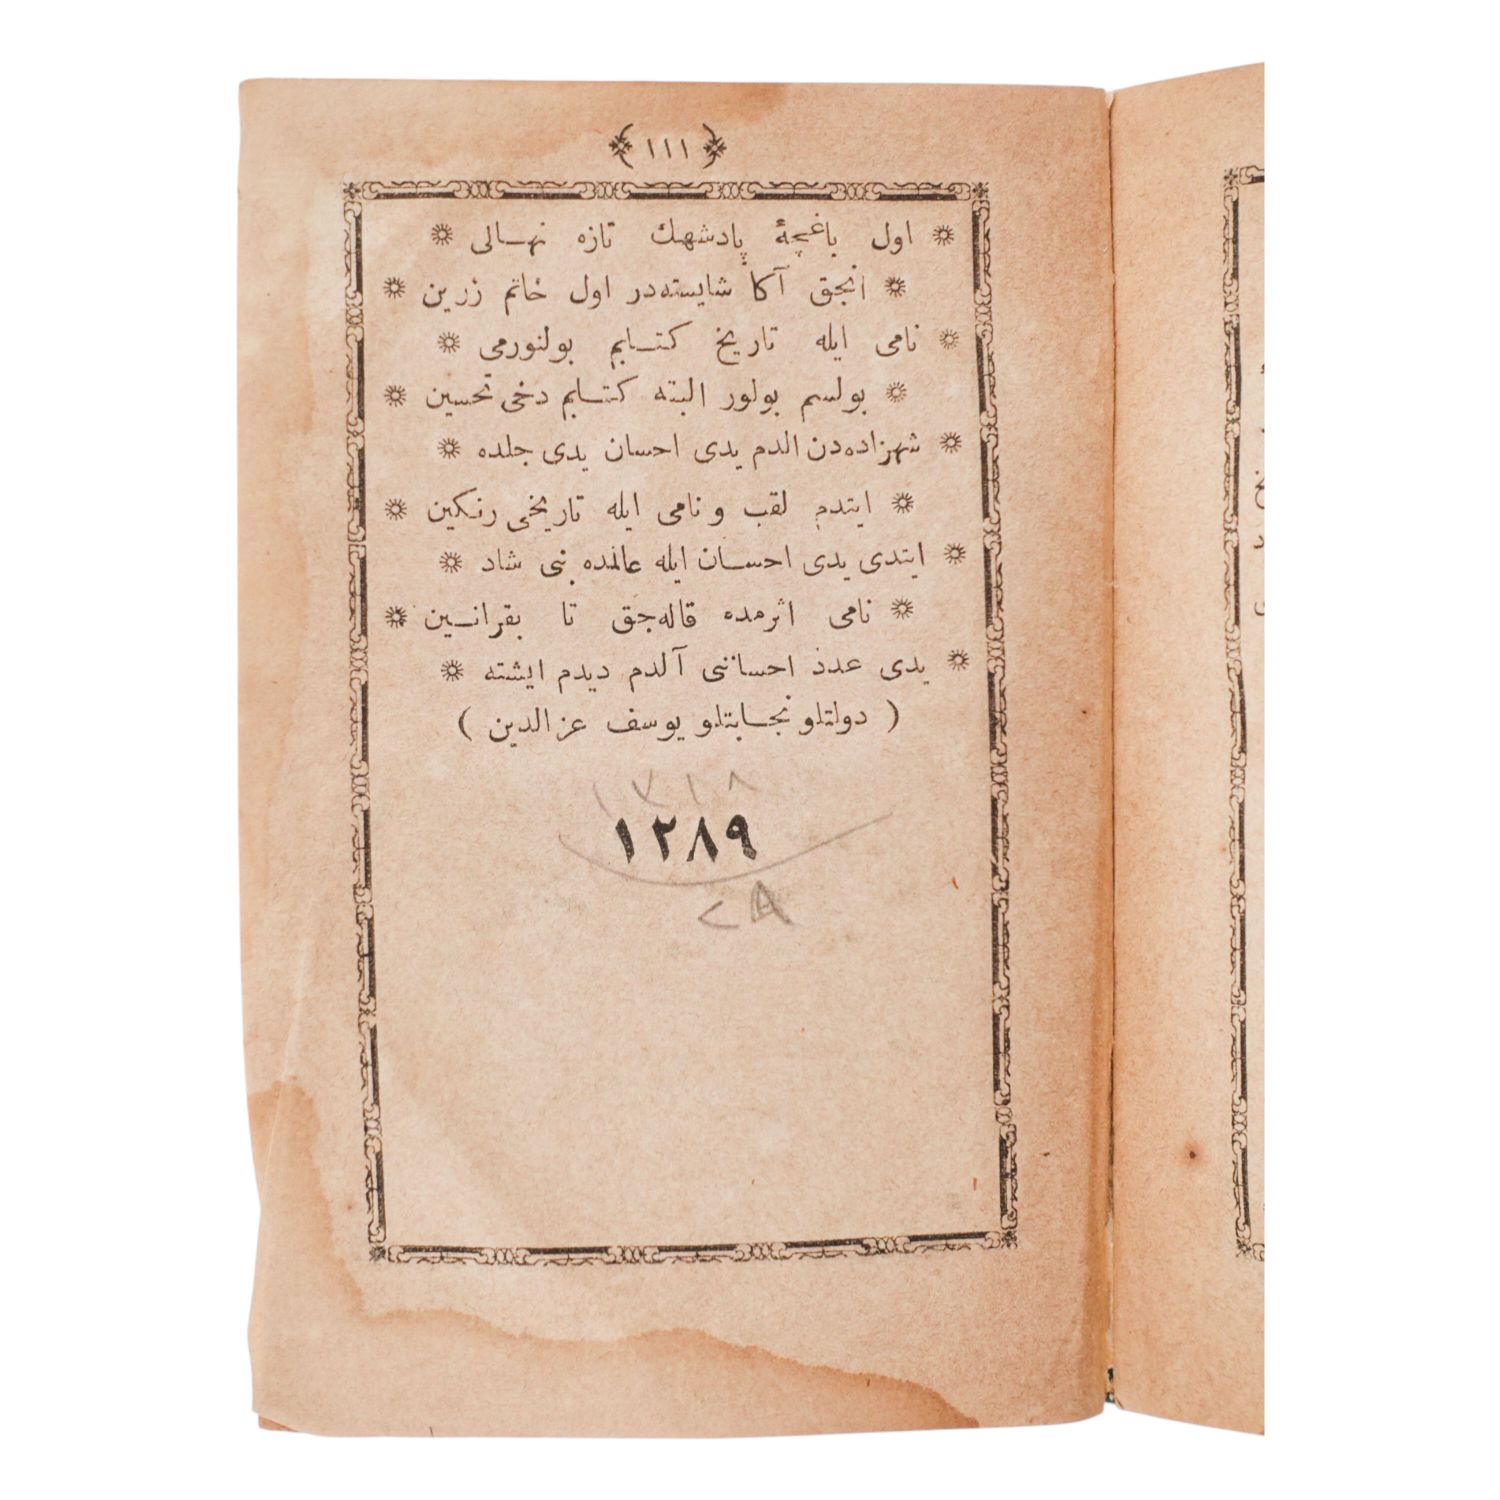 ﴿ ١١١ ﴾
❊ اول باغچهٔ پادشهك تازه نهالی ❊
❊ انجق آكا شایسته‌در اول خاتم زرین ❊
❊ نامی ایله تاریخ كتابم بولنورمی ❊
❊ بولسم بولور البته كتابم دخی تحسین ❊
❊ شهزاده‌دن الدم یدی احسان یدی جلده ❊
❊ ایتدم لقب و نامی ایله تاریخی رنكین ❊
❊ ایتدی یدی احسان ایله عالمده بنی شاد ❊
❊ نامی اثرمده قاله‌جق تا بقرانسین ❊
❊ یدی عدد احساننی آلدم دیدم ایشته ❊
( دولتلو نجابتلو یوسف عزالدین )
١٢٨٩